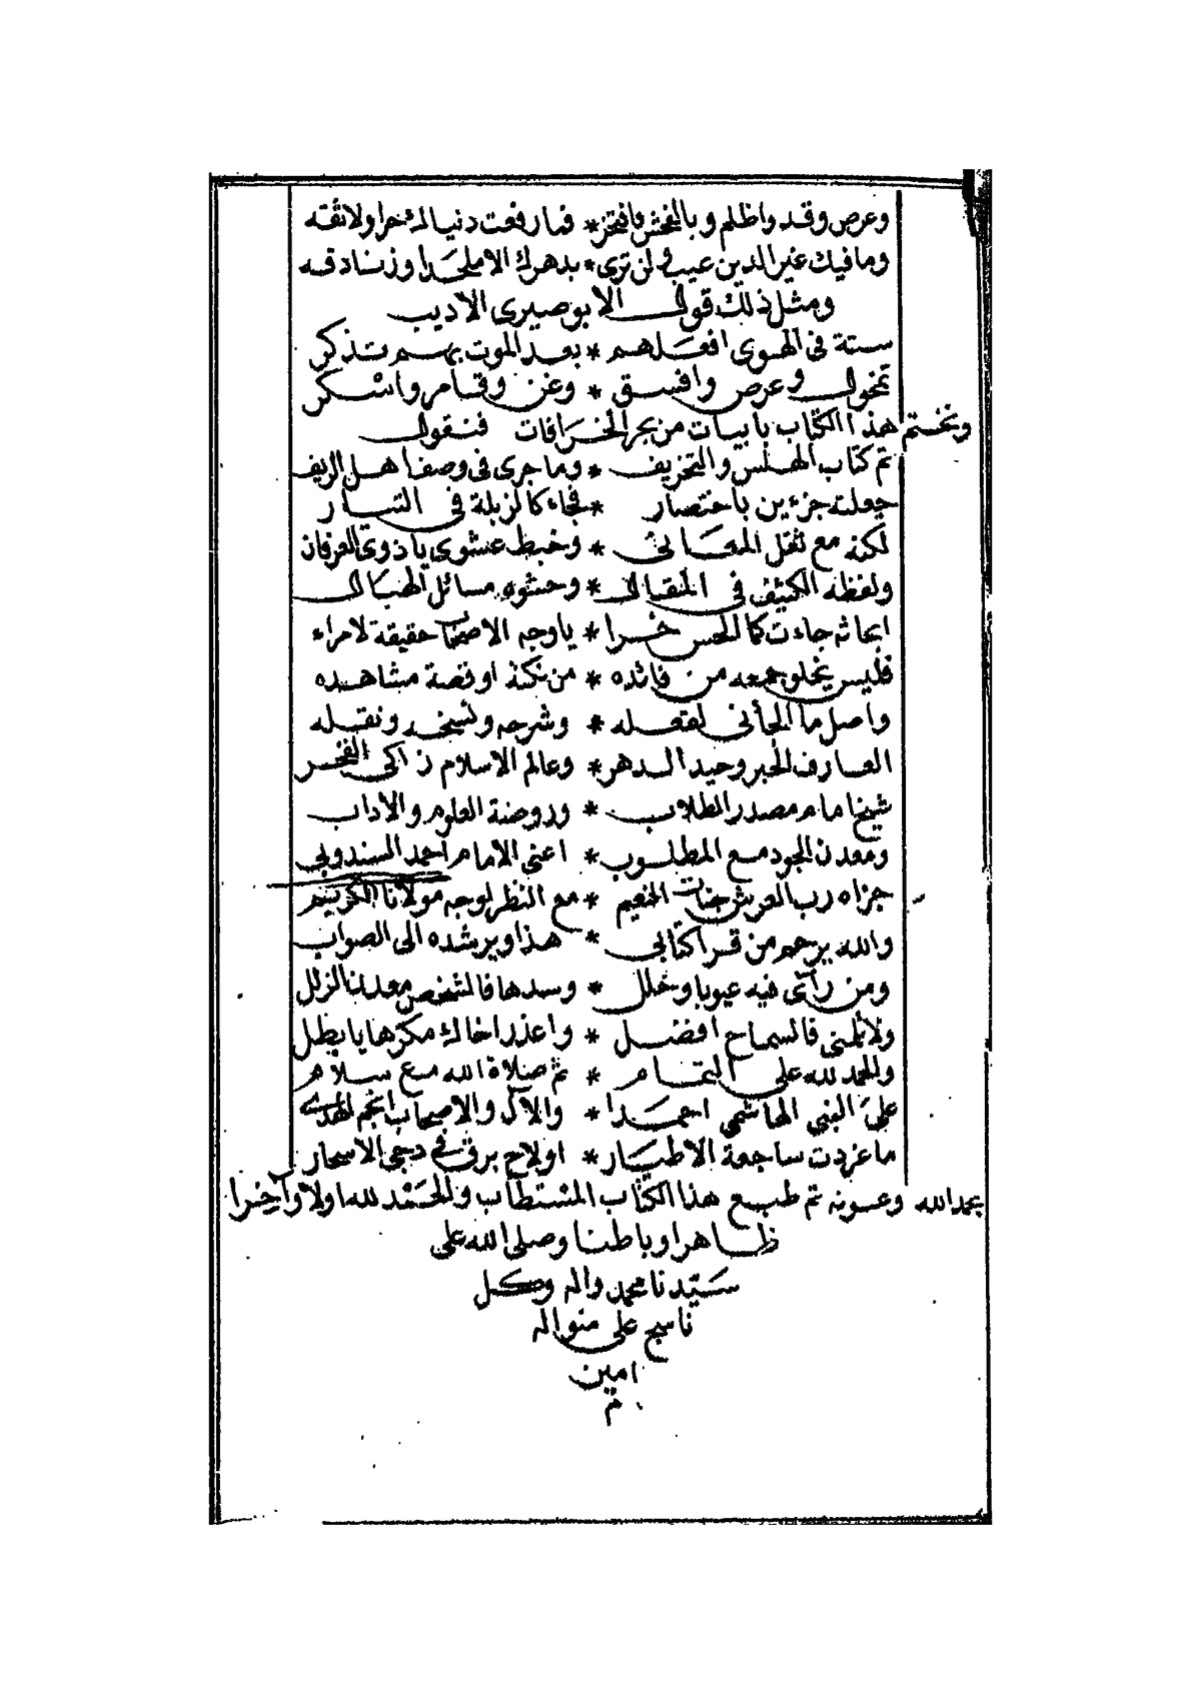 وعرص وقد واظلم وبالفحش فافتخر * فما رفعت دنياك حرا ولا ثقه
وما فيك غير الدين عيب ولن ترى * بدهرك الا ملحدا وزنادقه
ومثل ذلك قول الابوصيرى الاديب
ستة فى الهوى افعلهم * بعد الموت بهم تذكر
تمخول وعرص وافسق * وغن وقامر واسكر
ونختم هذا الكتاب بابيات من بحر الخرافات فنقول
تم كتاب الهلس والتخريف * وما جرى فى وصف اهل الريف
جعلته جزئين باختصار * فجاء كالزبلة فى التيار
لكنه مع ثقل المعانى * وخبط عشوى يا ذوى العرفان
ولفظه الكثيف فى المقال * وحشوه مسائل الهبال
ابحاثه جاءت كما لحس خرا * يا وجه الاصحاب حقيقة لامراء
فليس يخلو جمعه من فائده * من نكتة او قصة مشاهده
واصل ما الجأنى لفعله * وشرحه ونسخه ونقله
العارف الحبر وحيد الدهر * وعالم الاسلام زاكى الفخر
شيخ امام مصدر الطلاب * وروضة العلوم والآداب
ومعدن الجود مع المطلوب * اعنى الامام احمد السندوبى
جزاه رب العرش جنات النعيم * مع النظر لوجه مولانا الكريم
والله يرحم من قرا كتابى * هذا ويرشده الى الصواب
ومن رأى فيه عيوبا وخلل * وسدها فالشخص معدن الزلل
ولا تلمنى فالسماح افضل * واعذر اخاك مكرها يا بطل
والحمد لله على التمام * ثم صلاة الله مع سلام
على النبى الهاشمى احمدا * والآل والاصحاب انجم الهدى
ما غردت ساجعة الاطيار * او لاح برق فى دجى الاسحار
بحمد الله وعونه تم طبع هذا الكتاب المستطاب والحمد لله اولا وآخرا
ظاهرا وباطنا وصلى الله على
سيدنا محمد واله وكل
ناسج على منواله
امين
تم